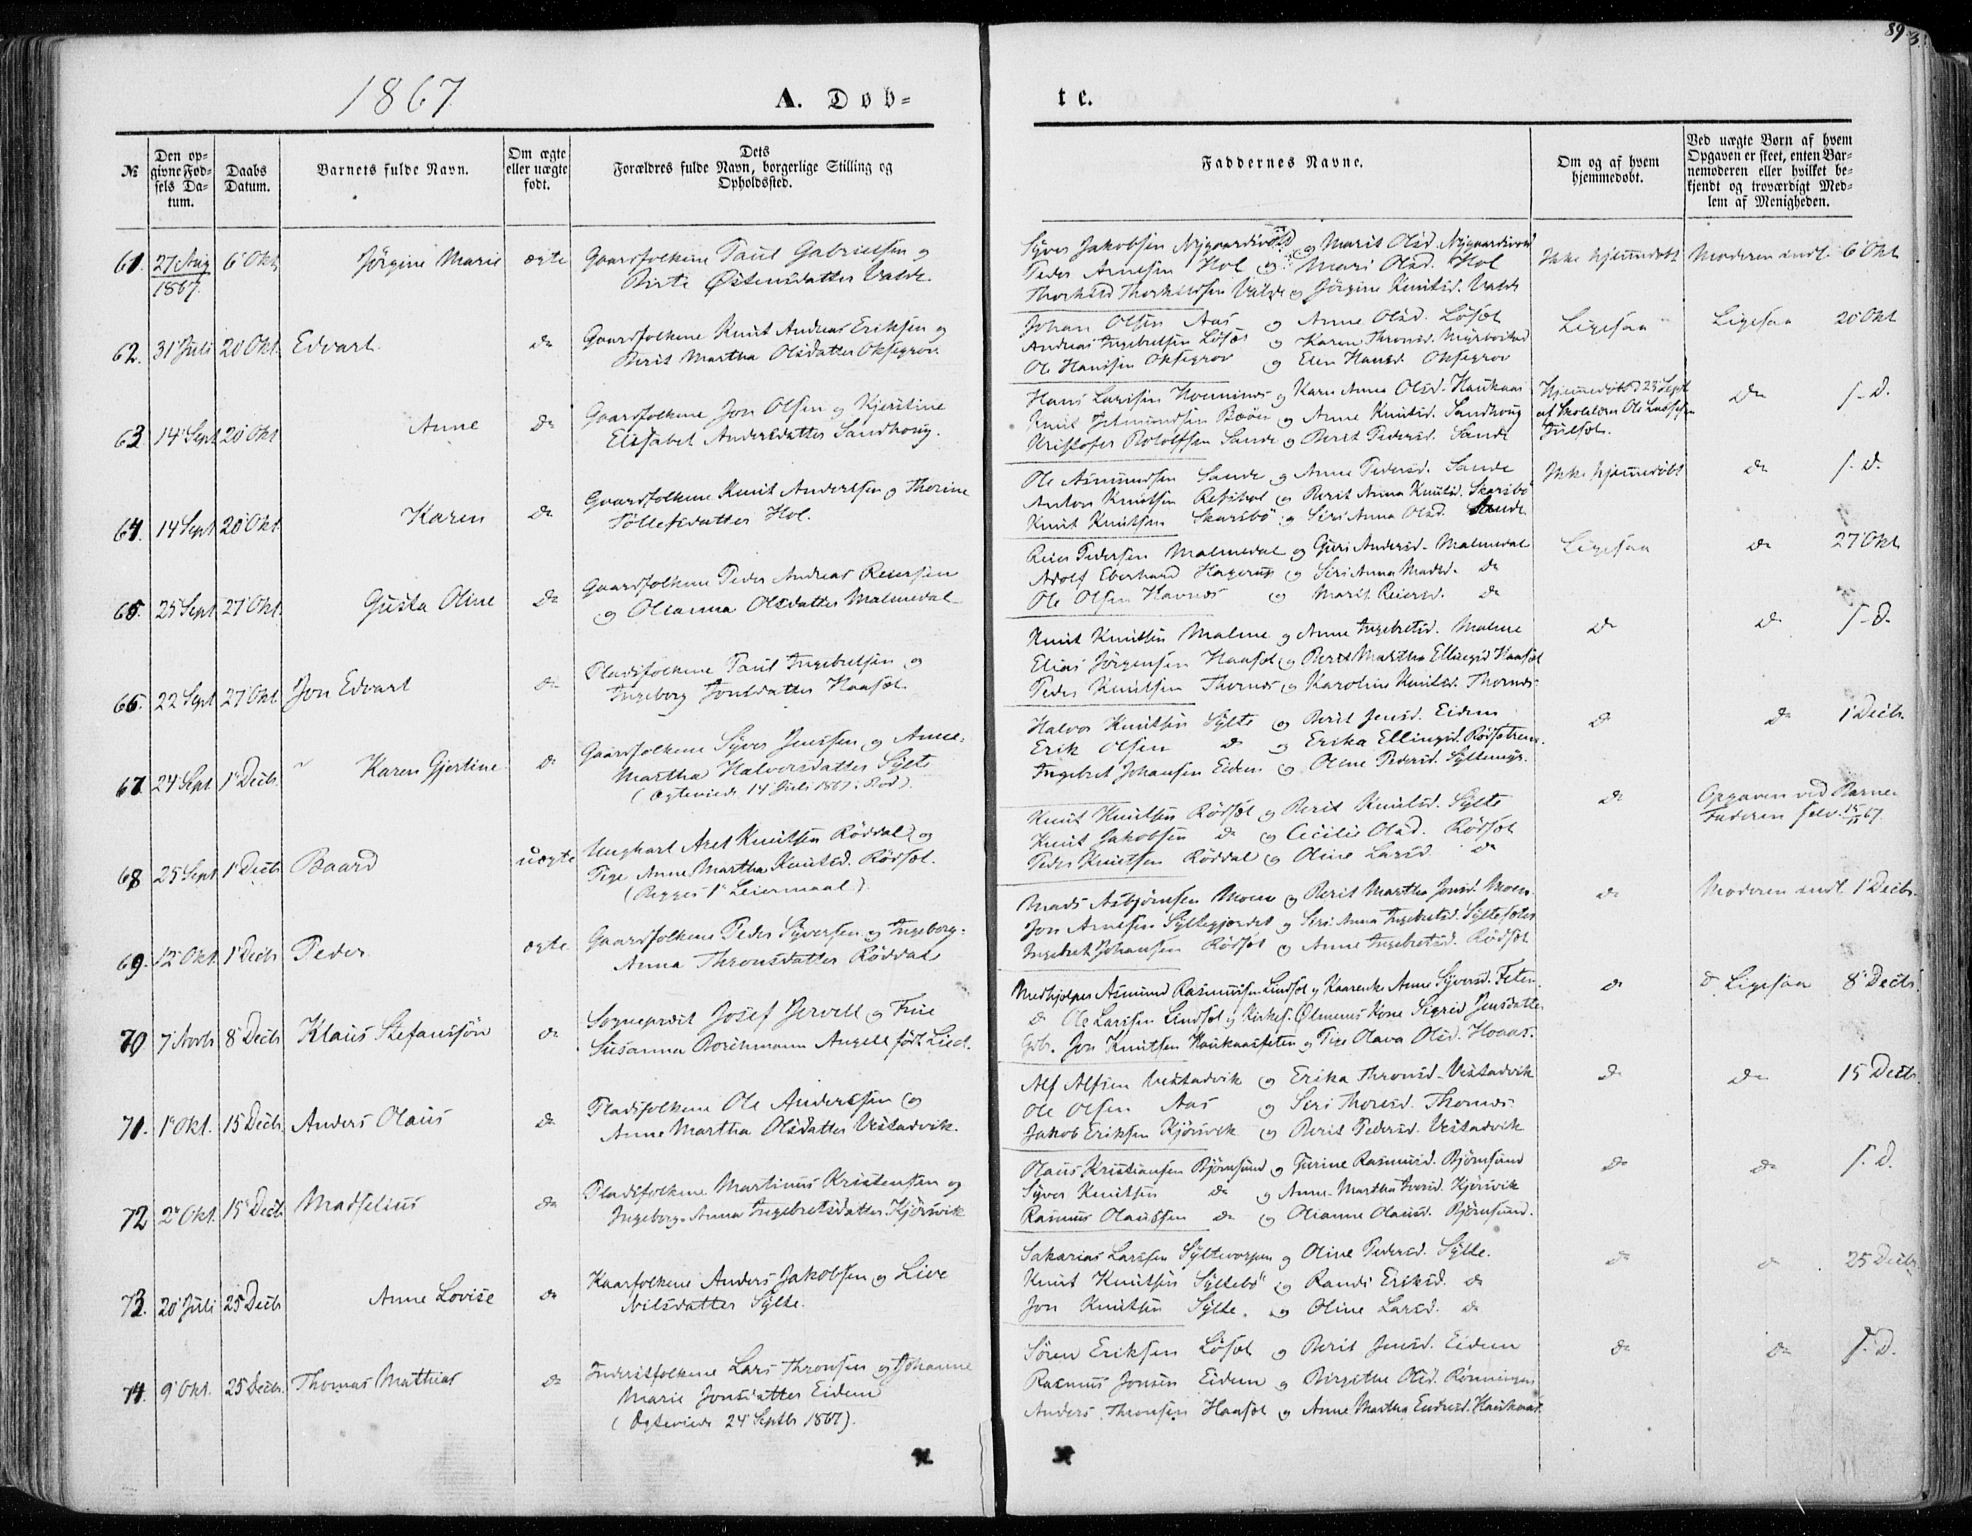 893.
1867
A. Døb=
te.
№
Den op=
givne Fød=
sels Da=
tum.
Daabs
Datum.
Barnets fulde Navn.
Om ægte
eller uægte
født.
Dets
Forældres fulde Navn, borgerlige Stilling og
Opholdssted.
Faddernes Navne.
Om og af hvem
hjemmedøbt.
Ved uægte Børn af hvem
Opgaven er skeet, enten Bar=
nemoderen eller hvilket be=
kjendt og troværdigt Med=
lem af Menigheden.
61. 27 Aug 1867. 6 Okt Jörgine Marie ægte
Gaardfolkene Paul Gabrielsen og
Birte Östensdatter Valde.
Syver Jakobsen Nygaardsvold og Marit Olsd. Nygaardsvold
Peder Arnesen Hol og Mari Olsd. Hol
Thorkild Thorkildsen Valde og Jörgine Knutsd. Valde
Ikke hjemmedöbt
Moderen indl. 6 Okt
62. 31 Juli 20 Okt. Edvart do
Gaardfolkene Knut Andreas Eriksen og
Berit Martha Olsdatter Oksegrov.
Johan Olsen Aas og Anne Olsd. Löset
Andreas Ingebretsen Löset og Karen Thronsd. Myrbostad
Ole Hansen Oksegrov og Elen Hansd. Oksegrov
Ligesaa
Ligesaa 20 Okt
63 14 Sept 20 Okt Anne do
Gaardfolkene Jon Olsen og Kjerstine
Elisabet Andersdatter Sandhoug.
Hans Larssen og Karn Anna Olsd. Haukaas
Knut og Anne Knutsd. Sandhoug
Kristofer Rololfsen Sande og Berit Pedersd. Sande
Hjemmedöbt 23 Sept
af Skolelærer Ole Larssen
Julset.
do s. D.
64. 14 Sept 20 Okt Karen do
Gaardfolkene Knut Andersen og Thorine
Tollefsdatter Hol.
Ole Asmundsen Sande og Anne Pedersd. Sande
Anton Knutsen og Berit Anna Knutsd. Skarsbö
Knut Knutsen Skarsbö og Siri Anna Olsd. Sande
Ikke hjemmedöbt
do s. D.
65. 25 Sept 27 Okt. Gusta Oline do
Gaardfolkene Peder Andreas Reiersen
og Olianna Olsdatter Malmedal
Reier Pedersen Malmedal og Guri Andersd. Malmedal
Adolf Eberhard Hagerup og Seri Anna Madsd. do
Ole Olsen Havnes og Marit Reiersd. do
Ligesaa
do 27 Okt
66. 22 Sept 27 Okt Jon Edvart do
Pladsfolkene Paul Ingebretsen og
Ingeborg Jonsdatter Haaset.
Knut Knutsen Malme og Anne Ingebretsd. Malme
Elias Jörgensen Haaset og Berit Martha Ellingsd Haaset
Peder Knutsen Thornes og Karoline Knutsd. Thornes
do
do s. D.
67. 24 Sept 1 Decbr. Karen Gjertine do
Gaardfolkene Syver Jenssen og Anne=
Martha Halversdatter Sylte
(Ægteviede 14 Juli 1867. Bod).
Halvor Knutsen Sylte og Berit Jensd. Eidem
Erik Olsen do og Erika Ellingsd. Rödsetrem.
Ingebret Johansen Eidem og Oline Pedersd. Syltemyr.
do
do 1 Decbr.
68 25 Sept 1 Decbr Baard uægte
Ungkarl Axel Knutsen Röddal og
Pige Anne Martha Knutsd. Rödset.
(Begges 1ste Leiermaal).
Knut Knutsen Rödset og Berit Knutsd. Sylte
Knut Jakobsen do og Cicilie Olsd. Rödset
Peder Knutsen Röddal og Oline Larsd. do
do
Opgaven ved Barne-
faderen selv. 15/11 67.
69. 12 Okt. 1 Decbr Peder ægte
Gaardfolkene Peder Syversen og Ingeborg=
Anna Thronsdatter Röddal
Mads Asbjörnsen Moen og Berit Martha Jonsd. Moen
Jon Arnesen Syltegjerdet og Seri Anna Ingebretsd. Syltesæter
Ingebret Johansen Rödset og Anne Ingebretsd. Rödset
do
Moderen indl. 1 Decbr.
70 7 Novbr 8 Decbr Klaus Stefansön do
Sogneprest Josef Jervell og Frue
Susanna Borchmann Angell födt Lied.
Medhjelper Asmund Rasmussen Lindset og Kaarenke Anne Syversd. Feten
do Ole Larssen Lindset og Kirkes. Ölmuns Kone Sigrid Jensdatter
Gbr. Jon Knutsen Haukaasfeten og Pige Olava Olsd. Hoaas.
do
do Ligesaa 8 Decbr.
71. 1 Okt. 15 Decbr. Anders Olaus do
Pladsfolkene Ole Andersen og
Anne Martha Olsdatter Vestadvik.
Alf Alfsen Vestadvik og Erika Thronsd. Vestadvik
Ole Olsen Aas og Seri Thoresd. Thornes
Jakob Eriksen Kjörsvik og Berit Pedersd. Vestadvik
do
do 15 Decbr.
72 2 Okt. 15 Decbr Madselius do
Pladsfolkene Martinus Kristensen og
Ingeborg-Anna Ingebretsdatter Kjörsvik
Olaus Kristiansen Björnsund og Gurine Rasmusd. Björnsund
Syver Knutsen do og Anne-Martha Iversd. Kjörsvik
Rasmus Olaussen do og Olianne Olausd. Björnsund.
do
do s. D.
73. 20 Juli 25 Decbr Anne Lovise do
Kaarfolkene Anders Jakobsen og Live
Nilsdatter Sylte.
Sakarias Larssen Syltevorpen og Oline Pedersd. Sylte.
Knut Knutsen Syltebö og Randi Eriksd. do
Jon Knutsen Sylte. og Oline Larsd. do
do
do 25 Decbr.
74. 9 Okt. 25 Decbr. Thomas Mathias do
Inderstfolkene Lars Thronsen og Johanne
Marie Jonsdatter Eidem
(Ægteviede 24 Septbr 1867).
Sören Eriksen Löset og Berit Jensd. Eidem
Rasmus Jonsen Eidem og Birgitte Olsd. Rönningen
Anders Thronsen Haaset og Anne Martha Endresd. Haukaas.
do
do s. D.